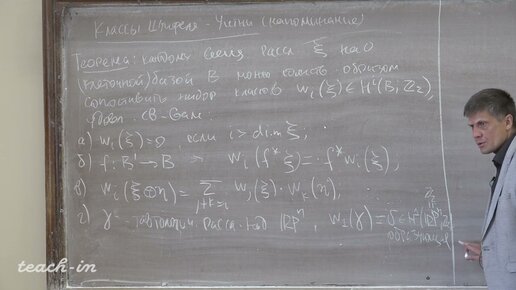 Классы Штифеля - Уитни (напоминание)
Теорема: каждому рассл. ξ над
(клеточной) базой B можно образом
сопоставить набор классов wᵢ(ξ) ∈ Hⁱ(B; ℤ₂),
удовл. св-вам:
а) wᵢ(ξ) = 0, если i > dim ξ;
б) f: B' → B ⇒ wᵢ(f*ξ) = f*wᵢ(ξ);
в) wᵢ(ξ⊕η) = Σ_{j+k=i} wⱼ(ξ)·wₖ(η);
г) γ - тавтологич. рассл. над ℝPⁿ, w₁(γ) = δ ∈ H¹(ℝPⁿ; ℤ₂)
образующая
teach-in